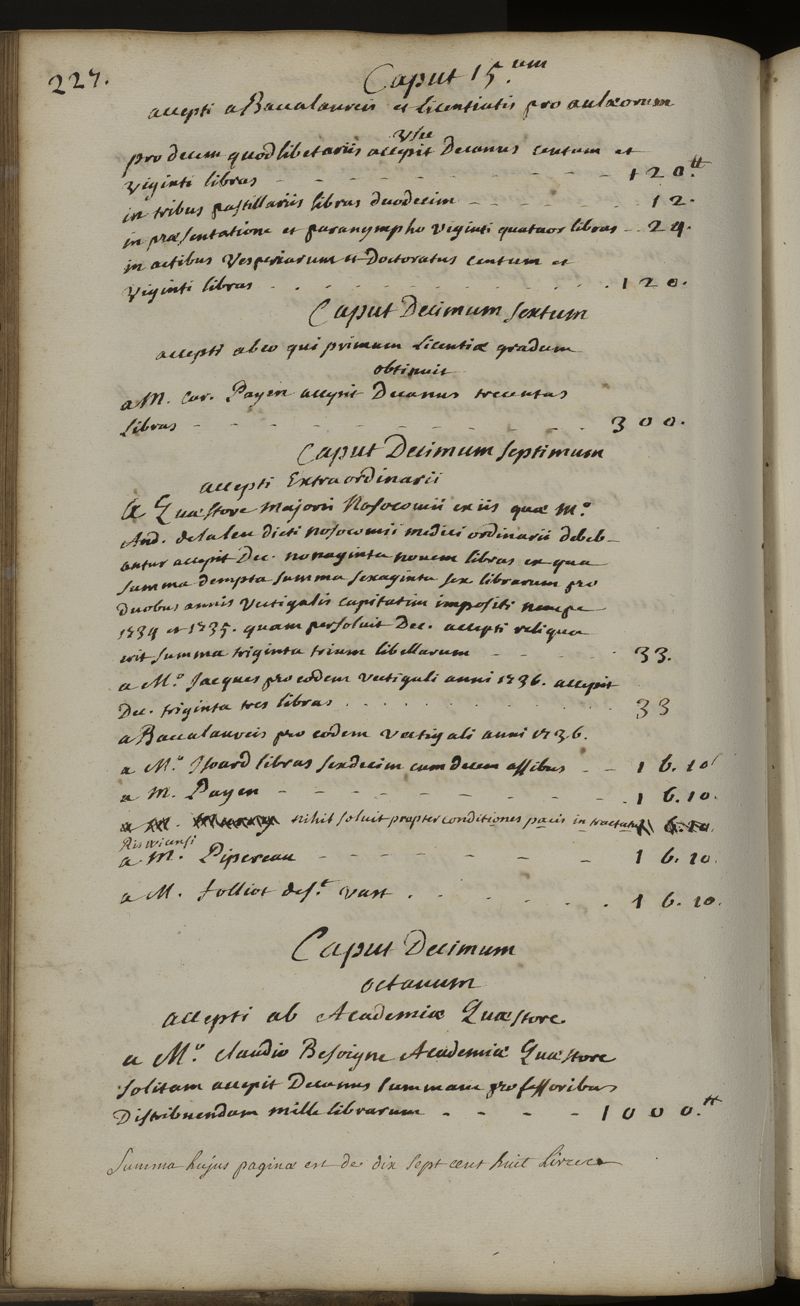 227.
Caput 15.um
accepti a Baccalaureis et Licentiatis pro aulæorum
usu
pro decem quodlibetariis accepit Decanus centum et
viginti libras - - - - - - - - - 120.tt
in tribus pastillariis libras duodecim - - - - - - 12.
in præsentatione et paranympho viginti quatuor libras - - 24.
in actibus vesperiarum et Doctoratus centum et
viginti libras . . . . . . . . . . 120.
Caput Decimum sextum
accepti ab eo qui primum Licentiæ gradum
obtinuit
a M. Car. Payen accepit Decanus trecentas
Libras - - - - - - - - - 300.
Caput Decimum septimum
accepti Extraordinarii
a Quæstore majoris Nosocomii ex iis quæ M.o
And. de la leu dicti nosocomii medici ordinarii deleb-
antur accepit Dec. nonaginta novem libras ex qua
summa dempta summa sexaginta sex librarum pro
duobus annis vectigalis capitatim impositi nempe
1734 et 1735. quam persoluit Dec. accepti reliqua
erit summa triginta trium libellarum - - - - 33.
a M.o Jacques pro eodem vectigali anni 1736. accepit
Dec. triginta tres libras . . . . . . . . . 33
a Baccalaureis pro eodem vectigali anni 1736.
a M.o Isoard libras sexdecim cum decem assibus - - 16.10s
a M. Payen - - - - - - - - - 16.10.
a M. nihil soluit propter conditiones pacis in tractatu 16.10.
Riswicensi
a M. Pipereau - - - - - - - 16.10.
a M. folliot de s.t vast . . . . . . 16.10.
Caput Decimum
octauum
accepti ab Academiæ Quæstore
a M.o claudio Besoigne Academiæ Quæstore
solitam accepit Decanus summam professoribus
Distribuendam mille librarum - - - - 1000.tt
Summa hujus paginæ est de dix sept cent huit Livres